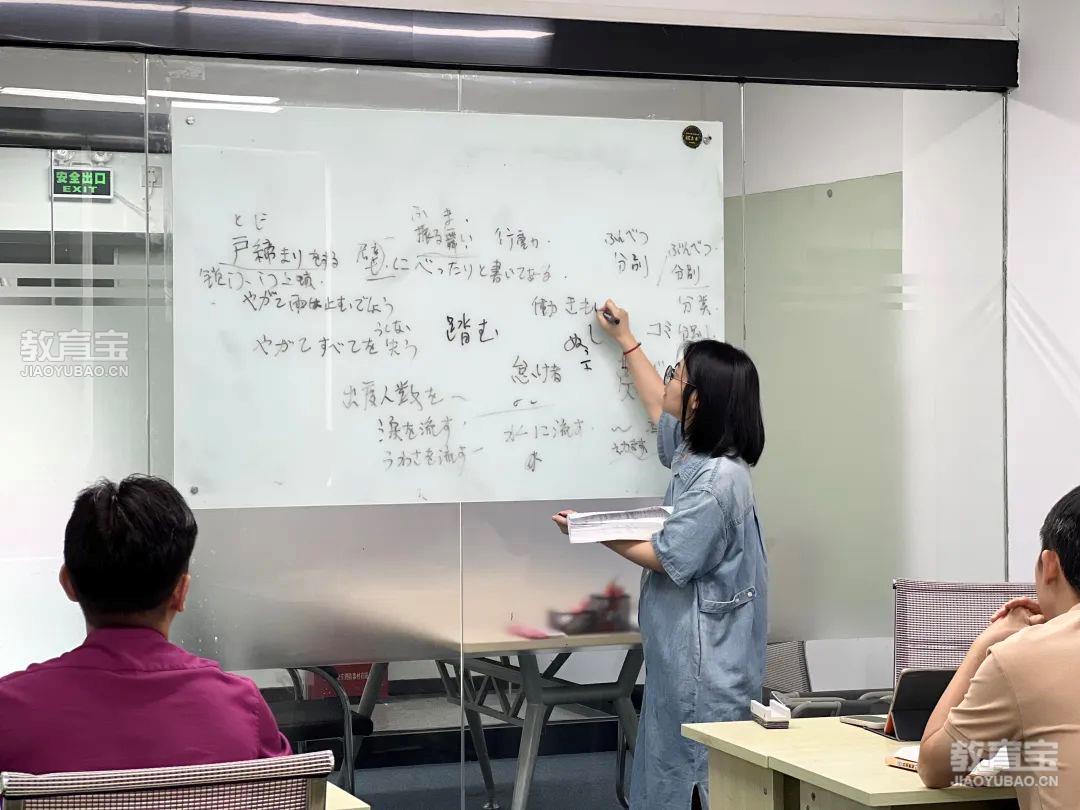 安全出口
EXIT
とじ
戸締まりをする
ふ ま.
振る舞い 行動力
壁.に べったりと書いてある.
やがて雨は止むでしょう
うしな
やがてすべてを失う
踏む
ふんべつ
分別
ぶんべつ
分別
分类.
ゴミ分別
働きもし
怠け者
出席人数を〜
涙を流す.
うわさを流す
水に流す.
水
教育宝
JIAOYUBAO.CN
教育宝
JIAOYUBAO.CN